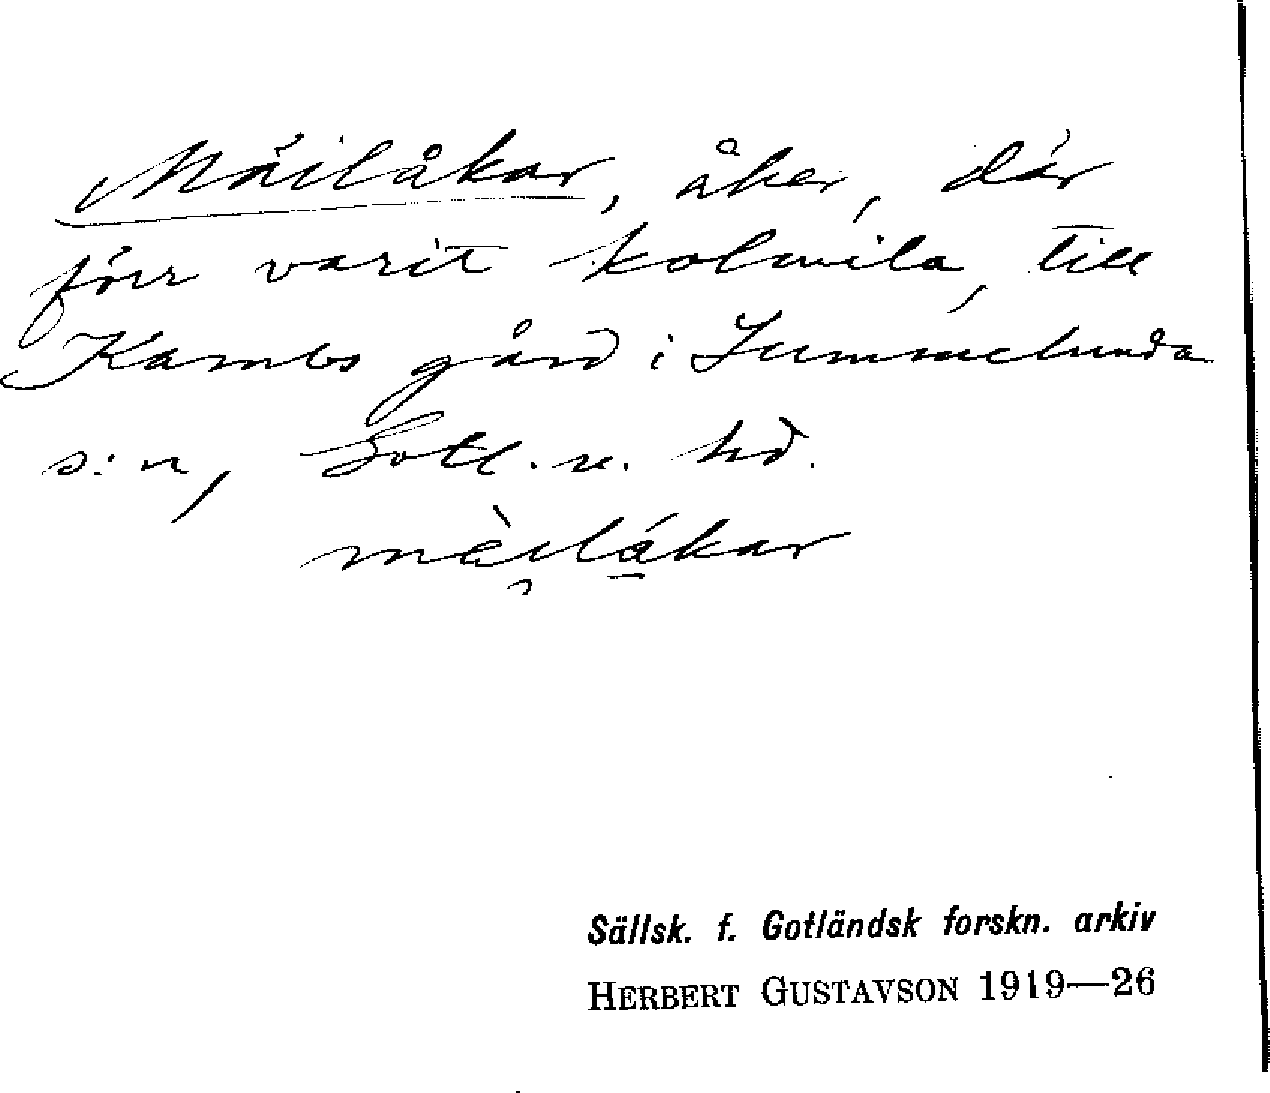 Mäilåkar, åker, där
förr varit kolmila, till
Kambs gård i Lummelunda
s:n, Gotl. n. hd.
mèi̯lá̱kar
Sällsk. f. Gotländsk forskn. arkiv
HERBERT GUSTAVSON 1919—26